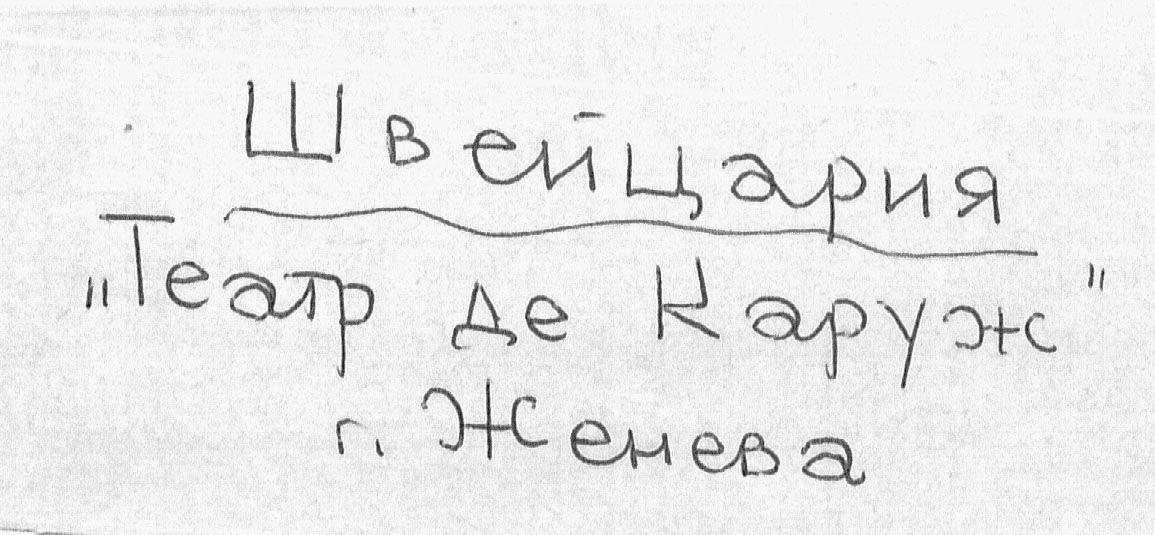 Швейцария
„Театр де Каруж"
г. Женева